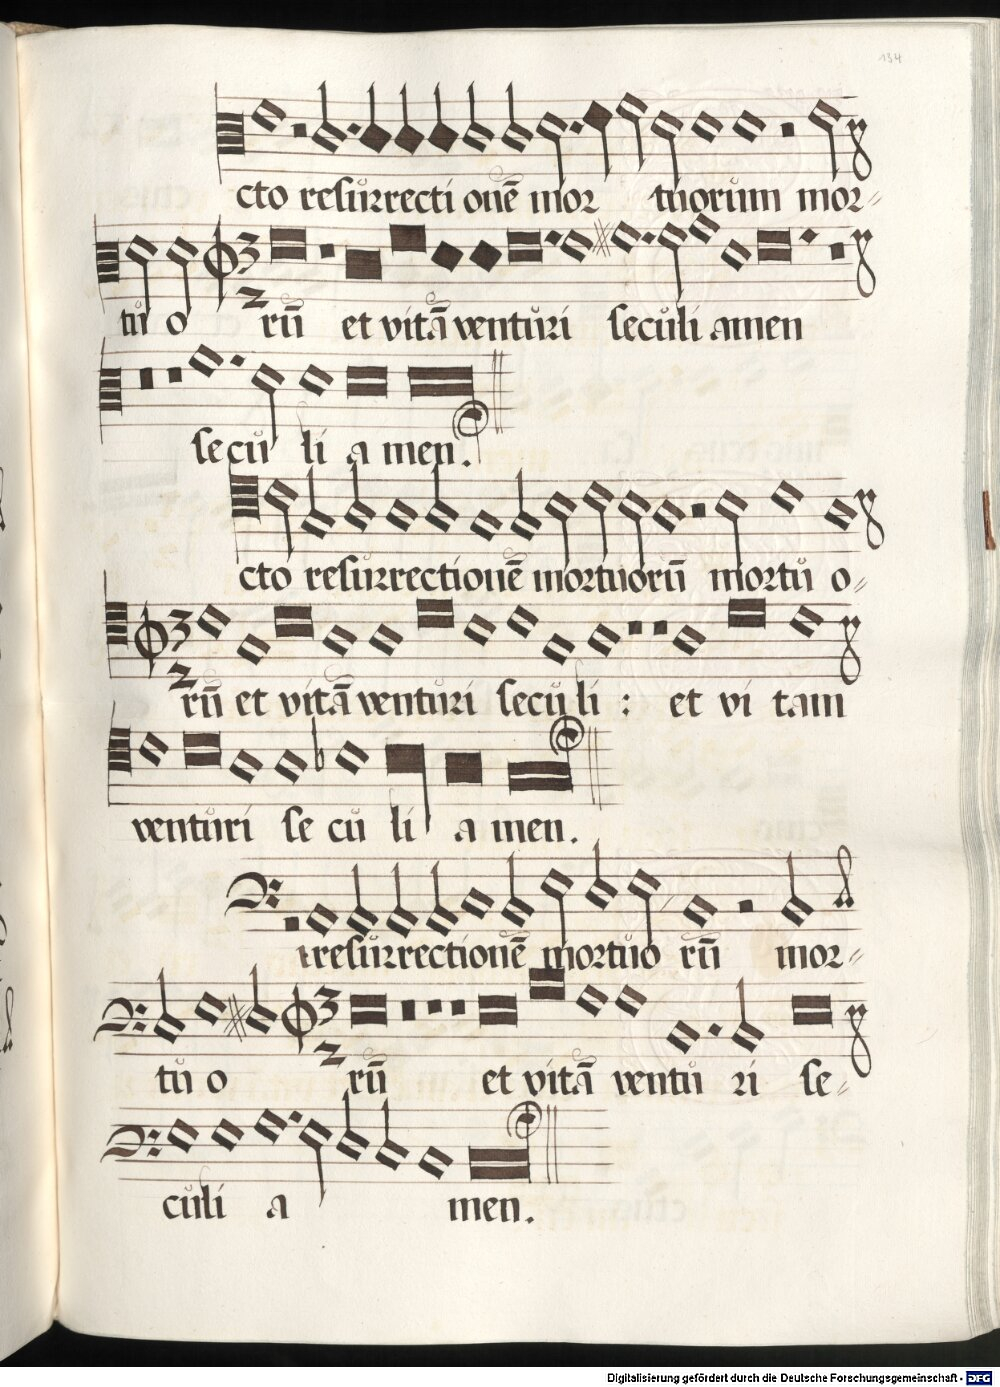 134
cto resůrrecti onē mor tuorum mor⸗
tů o rū et vitā ventůri secůli amen
seců li a men.
cto resůrrectionē mortuorū mortů o⸗
rū et vitā ventůri secůli : et vi tam
ventůri seců li a men.
resůrrectionē mortůo rū mor⸗
tů o rū et vitā ventů ri se⸗
cůli a men.
Digitalisierung gefördert durch die Deutsche Forschungsgemeinschaft - DFG